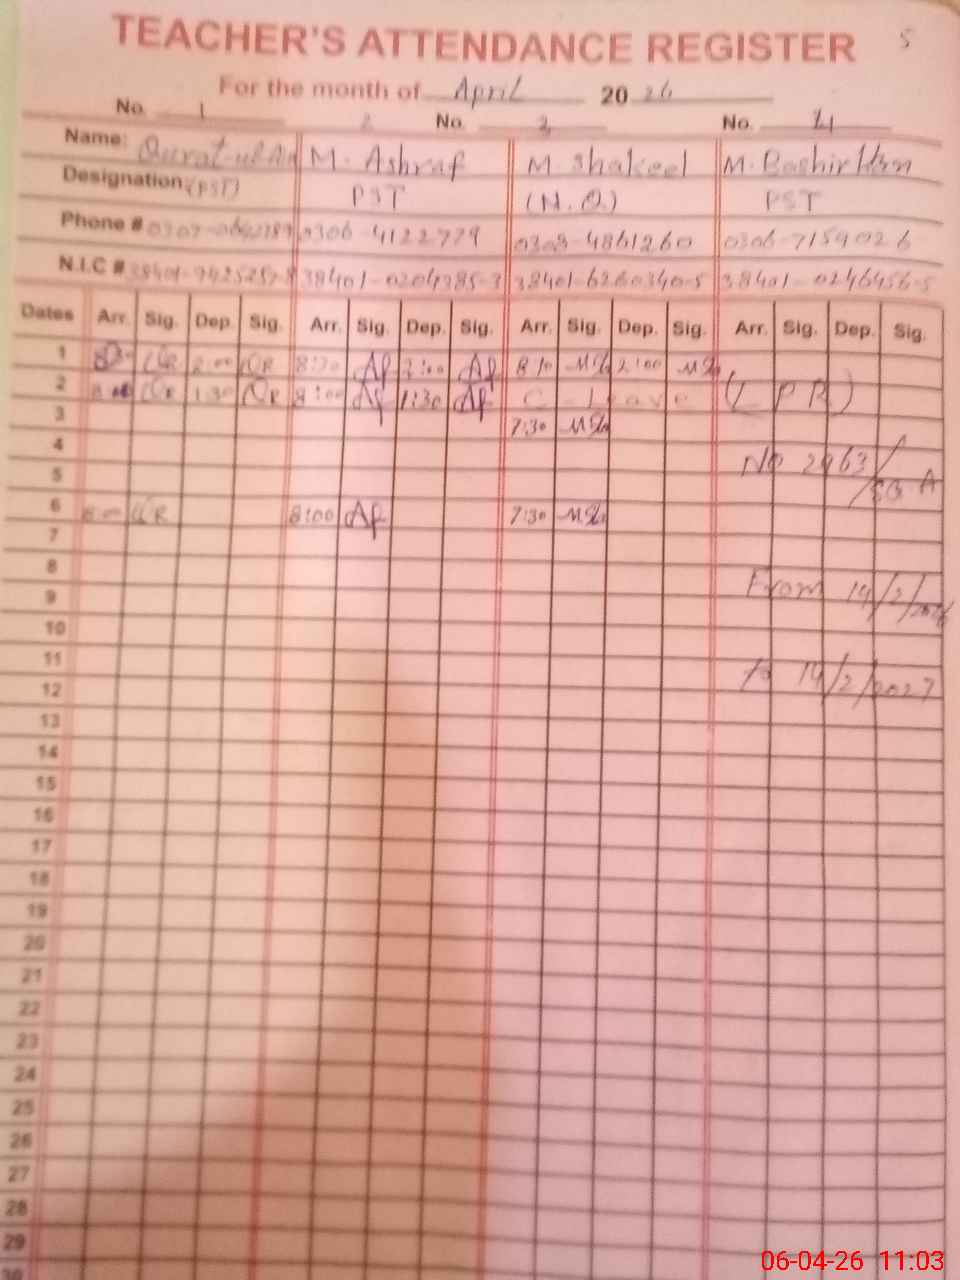 TEACHER'S ATTENDANCE REGISTER 5
For the month of April 20 26
No. 1 2 No. 3 No. 4
Name: Qurat-ul-Ain M. Ashraf M. Shakeel M. Bashir Khan
Designation (PST) PST (N.Q.) PST
Phone # 0306-4122779 0303-4861260 0306-7159026
N.I.C # 38401-0204385-3 38401-6260340-5 38401-0246456-5
Dates Arr. Sig. Dep. Sig. Arr. Sig. Dep. Sig. Arr. Sig. Dep. Sig. Arr. Sig. Dep. Sig.
1 QR 2:00 QR 8:30 Af 2:00 Af 8:30 MSh 2:00 MSh
2 QR 1:30 QR 8:00 Af 1:30 Af C-Leave (LPR)
3 7:30 MSh
4 No 2963/
5
6 8:00 QR 8:00 Af 7:30 MSh
7
8 From 14/2/2026
9
10
11 to 14/2/2027
12
13
14
15
16
17
18
19
20
21
22
23
24
25
26
27
28
29
30
06-04-26 11:03